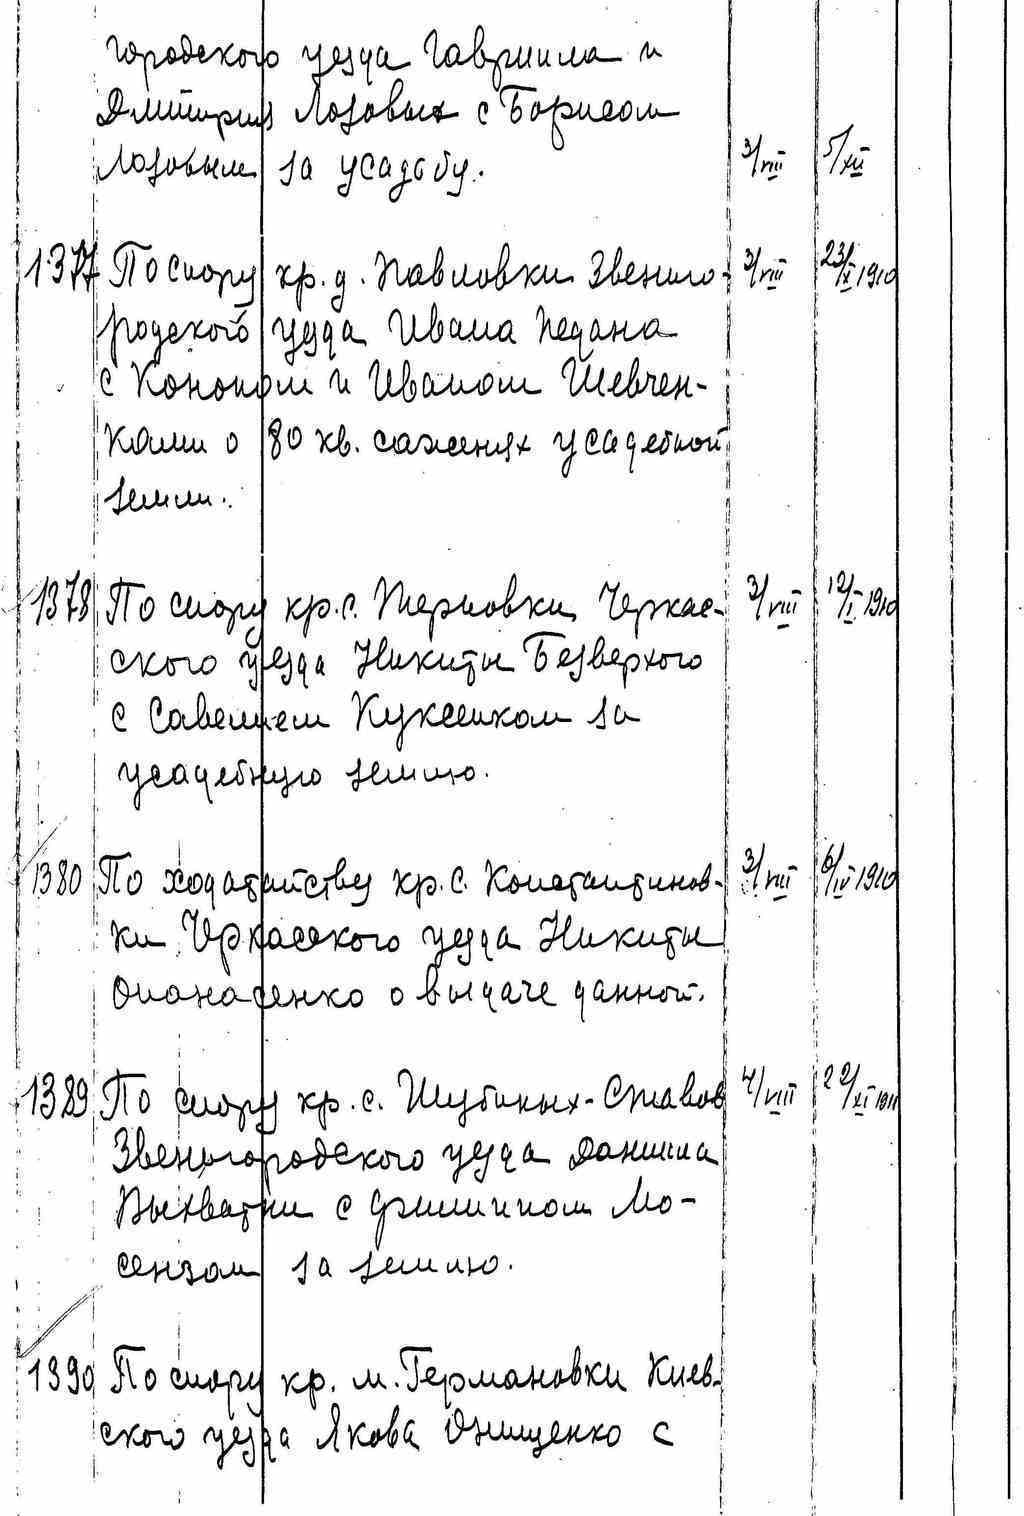 городского уезда Гавриила и
Дмитрия Лозовых с Борисом
Лозовым за усадьбу. 3/VIII 5/XII
1377 По спору кр. д. Павловки Звениго- 3/VIII 23/IX 1910
родского уезда Ивана Педана
с Кононом и Иваном Шевчен-
ками о 80 кв. саженях усадебной
земли.
1378 По спору кр. с. Черкас- 3/VIII 12/I 1910
ского уезда Никиты Безверхого
с Савелием за
усадебную землю.
1380 По ходатайству кр. с. Константинов- 3/VIII 6/IV 1910
ки Черкасского уезда Никиты
Опанасенко о выдаче данной.
1389 По спору кр. с. Шубиных-Ставов 4/VIII 22/XI 1911
Звенигородского уезда Даниила
с Филиппом Мо-
сензом за землю.
1390 По спору кр. м. Германовки Киев-
ского уезда Якова Онищенко с